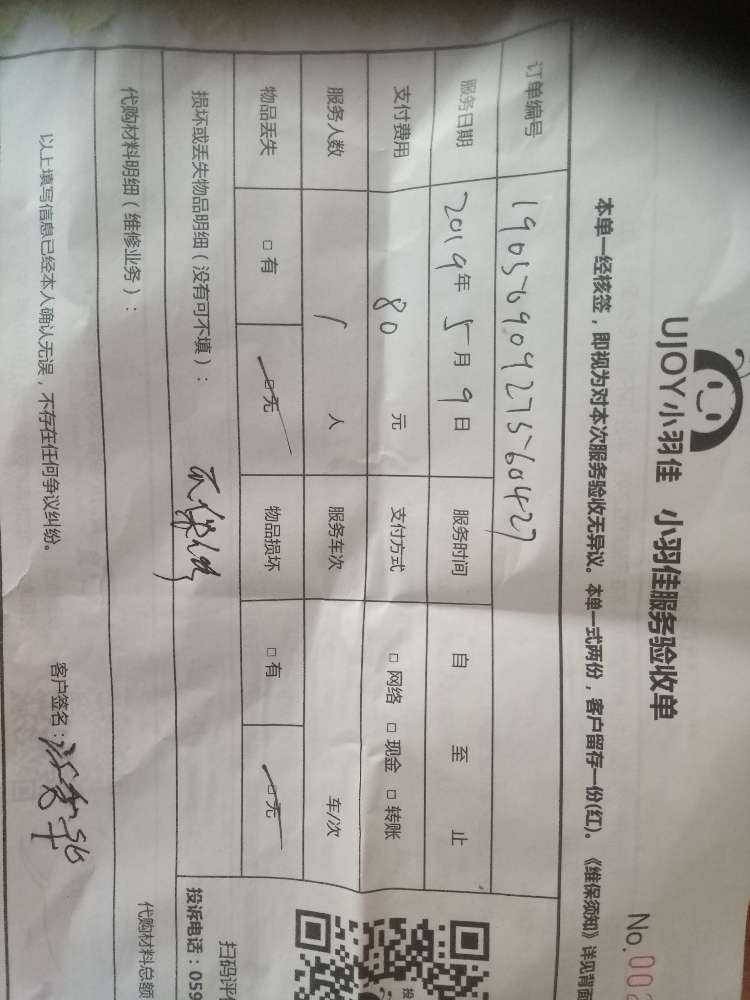 UJOY小羽佳 小羽佳服务验收单
No.002
本单一经核签，即视为对本次服务验收无异议。本单一式两份，客户留存一份(红)。《维保须知》详见背面
订单编号 1905090927560427
服务日期 2019年 5月 9日 服务时间 自 至 止
支付费用 80 元 支付方式 □ 网络 □ 现金 □ 转账
服务人数 1 人 服务车次 车/次
物品丢失 □ 有 □ 无 物品损坏 □ 有 □ 无
损坏或丢失物品明细（没有可不填）：
代购材料明细（维修业务）： 代购材料总额
以上填写信息已经本人确认无误，不存在任何争议纠纷。 客户签名：
扫码评价
投诉电话：059